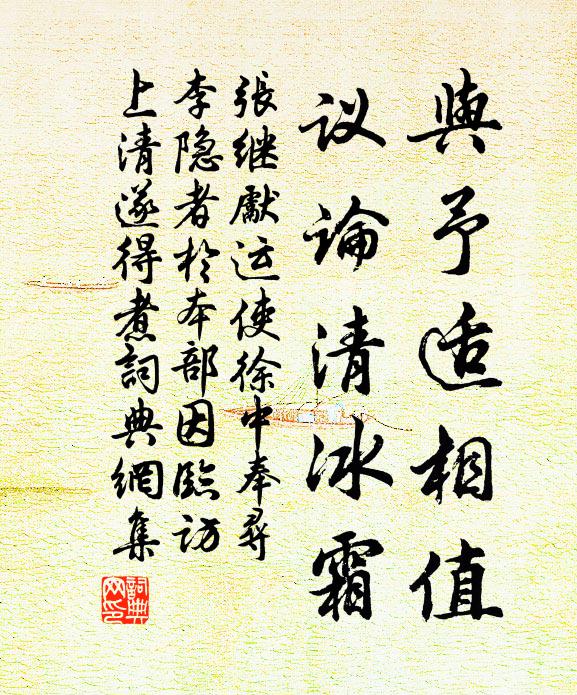 與予适相值
议論清冰霜
張继獻运使徐中奉尋
李隐者於本部因臨访
上清遂得煮詞典網集
詞典网印